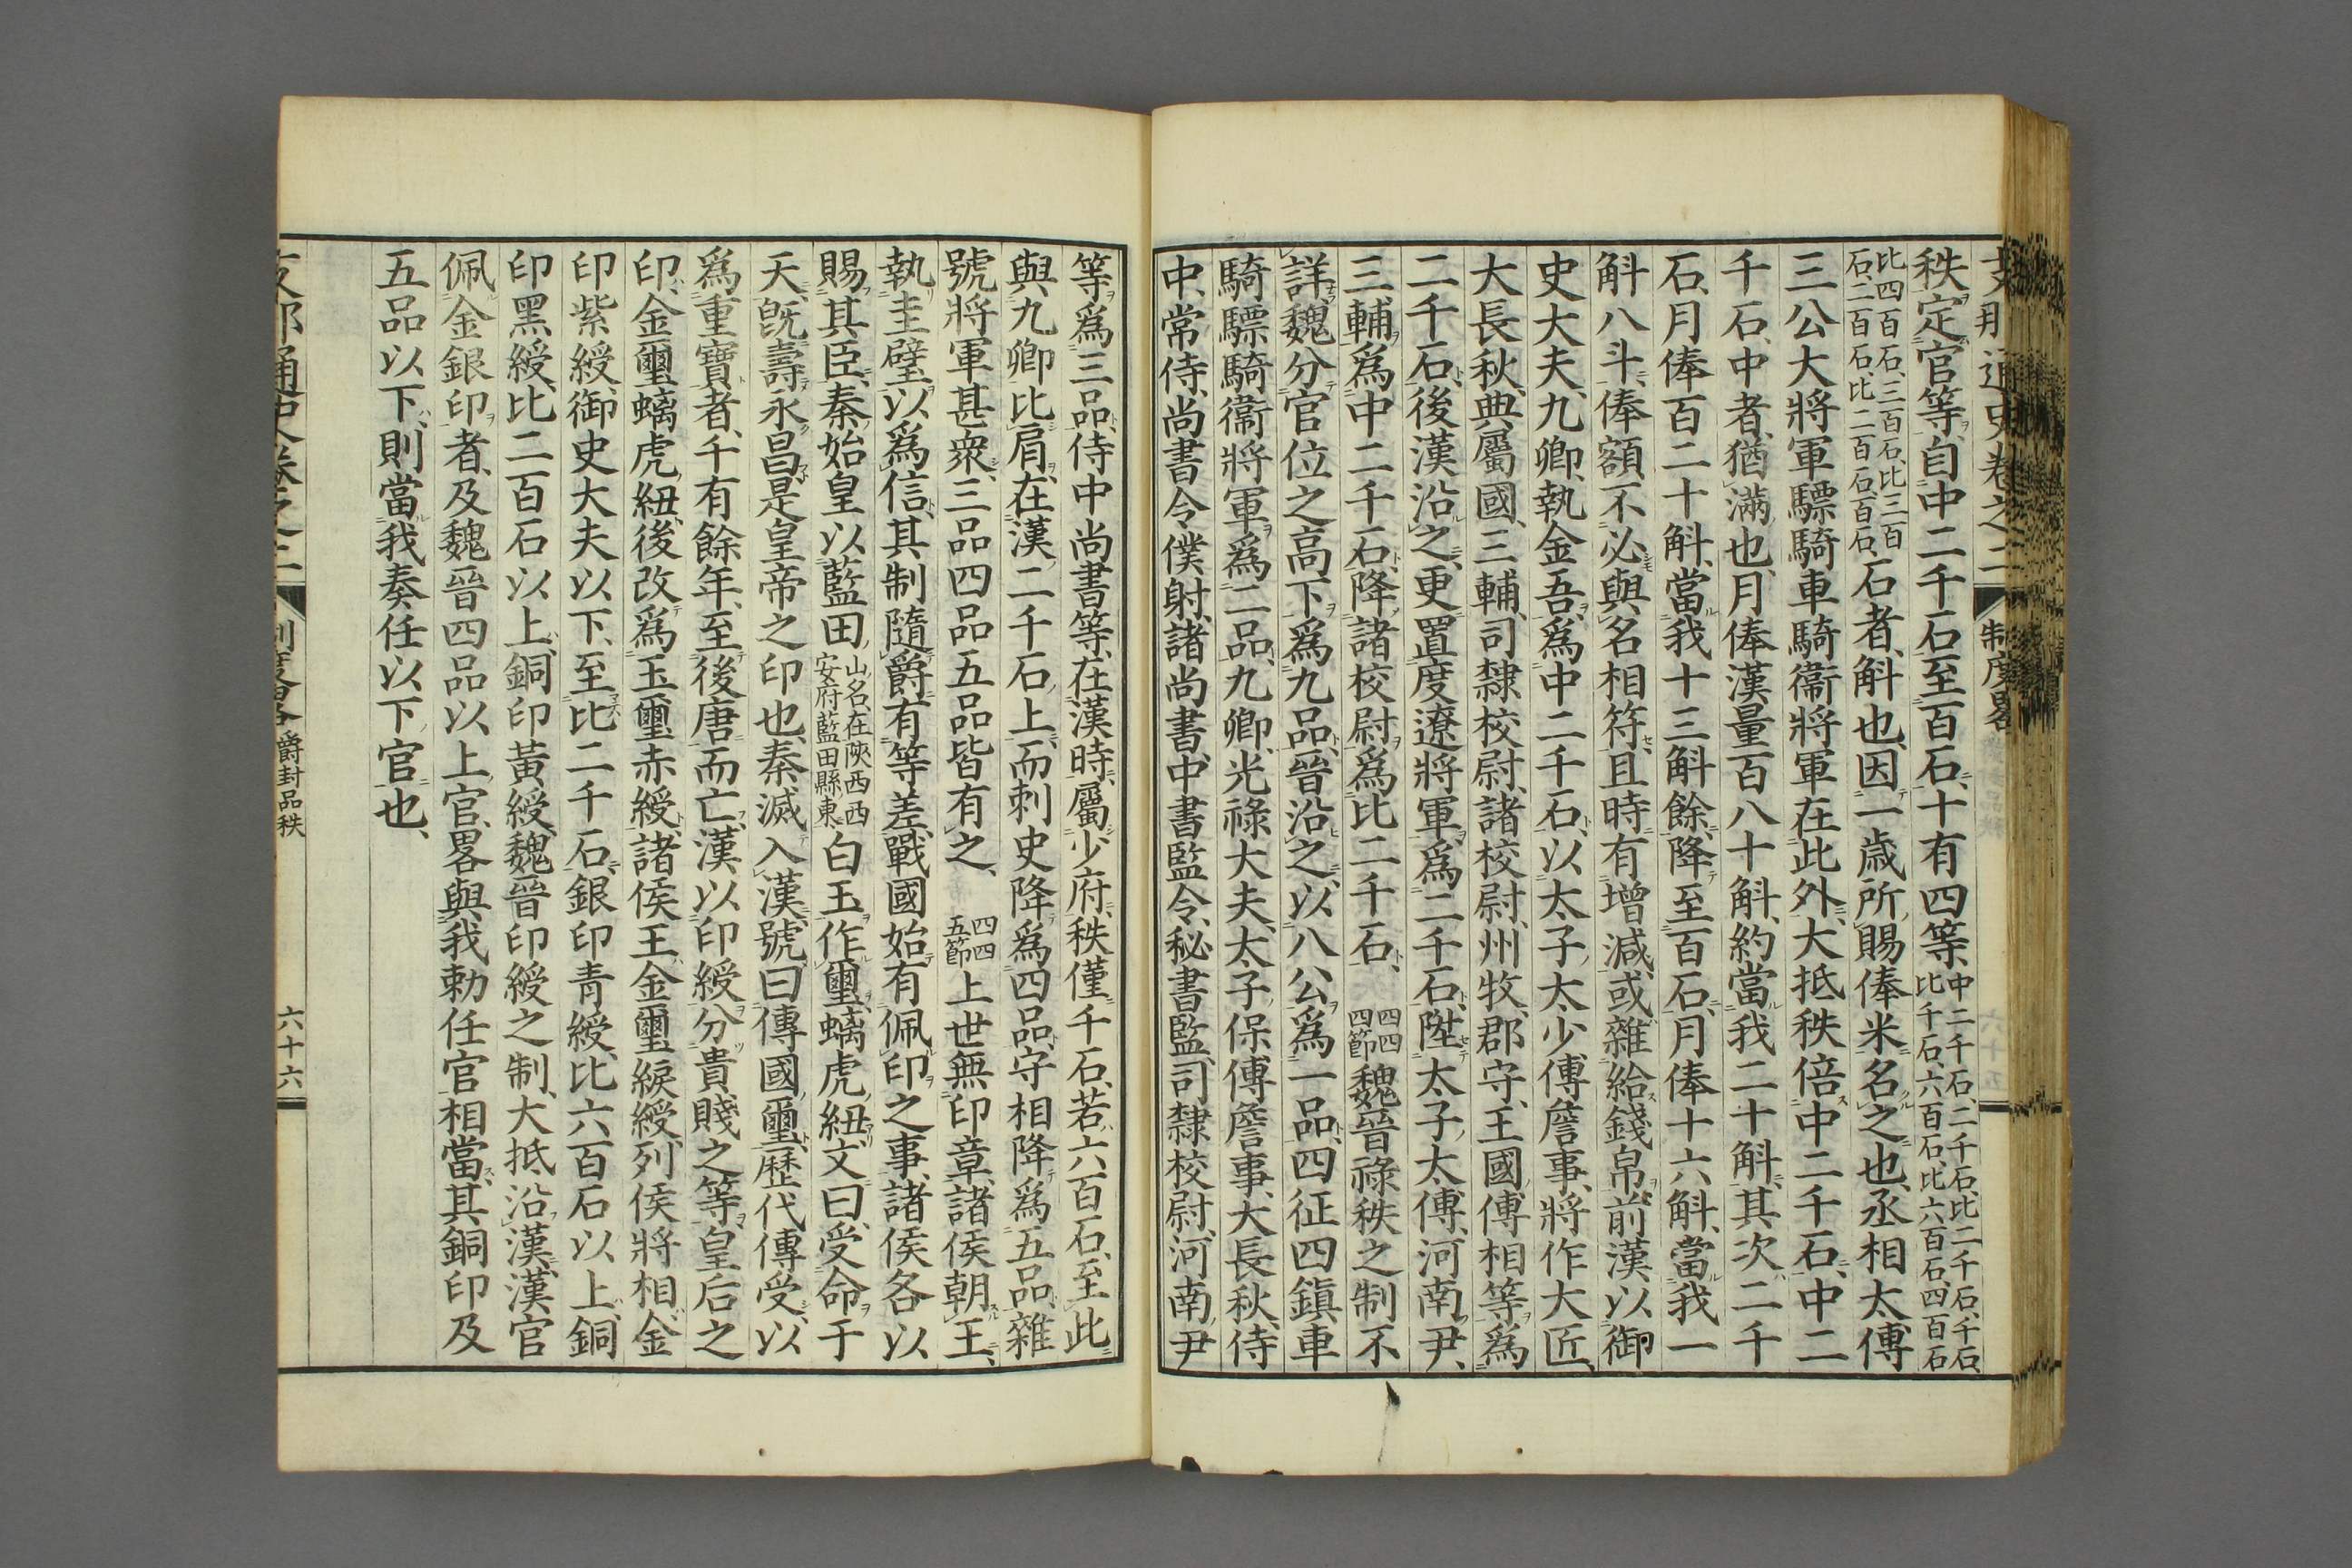 支那通史卷之二 制度畧
秩定官等、自中二千石至百石、十有四等、中二千石、二千石、比二千石、千石、比千石、六百石、比六百石、四百石、
比四百石、三百石、比三百石、二百石、比二百石、百石、石者、斛也、因一歳所賜俸米名之也、丞相太傅
三公大將軍驃騎車騎衞將軍在此外、大抵秩倍中二千石、中二
千石、中者、猶滿也、月俸漢量百八十斛、約當我二十斛、其次二千
石、月俸百二十斛、當我十三斛餘、降至百石、月俸十六斛、當我一
斛八斗、俸額不必與名相符、且時有增減、或雜給錢帛、前漢以御
史大夫、九卿、執金吾、爲中二千石、以太子太少傅詹事、將作大匠、
大長秋、典屬國、三輔、司隸校尉、諸校尉、州牧、郡守、王國傅相等、爲
二千石、後漢沿之、更置度遼將軍、爲二千石、陞太子太傅、河南尹、
三輔爲中二千石、降諸校尉爲比二千石、四四四節魏晉祿秩之制不
詳、魏分官位之高下、爲九品、晉沿之、以八公爲一品、四征四鎭車
騎驃騎衞將軍爲二品、九卿、光祿大夫、太子保傅詹事、大長秋、侍
中、常侍、尚書令、僕射、諸尚書、中書監令、秘書監、司隸校尉、河南尹
等爲三品、侍中尚書等、在漢時、屬少府、秩僅千石、若六百石、至此
與九卿比肩、在漢二千石上、而刺史降爲四品、守相降爲五品、雜
號將軍甚衆、三品四品五品皆有之、四四五節上世無印章、諸侯朝王、
執圭璧以爲信、其制隨爵有等差、戰國始有佩印之事、諸侯各以
賜其臣、秦始皇以藍田山名、在陝西西安府藍田縣東白玉作璽、螭虎紐、文曰、受命于
天、旣壽永昌、是皇帝之印也、秦滅入漢、號曰傳國璽、歷代傳受、以
爲重寶者、千有餘年、至後唐而亡、漢以印綬分貴賤之等、皇后之
印、金璽螭虎紐、後改爲玉璽赤綬、諸侯王金璽綟綬、列侯將相金
印紫綬、御史大夫以下、至比二千石、銀印青綬、比六百石以上、銅
印黑綬、比二百石以上、銅印黃綬、魏晉印綬之制、大抵沿漢、漢官
佩金銀印者、及魏晉四品以上官、畧與我勅任官相當、其銅印及
五品以下、則當我奏任以下官也、
支那通史卷之二 制度畧 爵封品秩 六十六